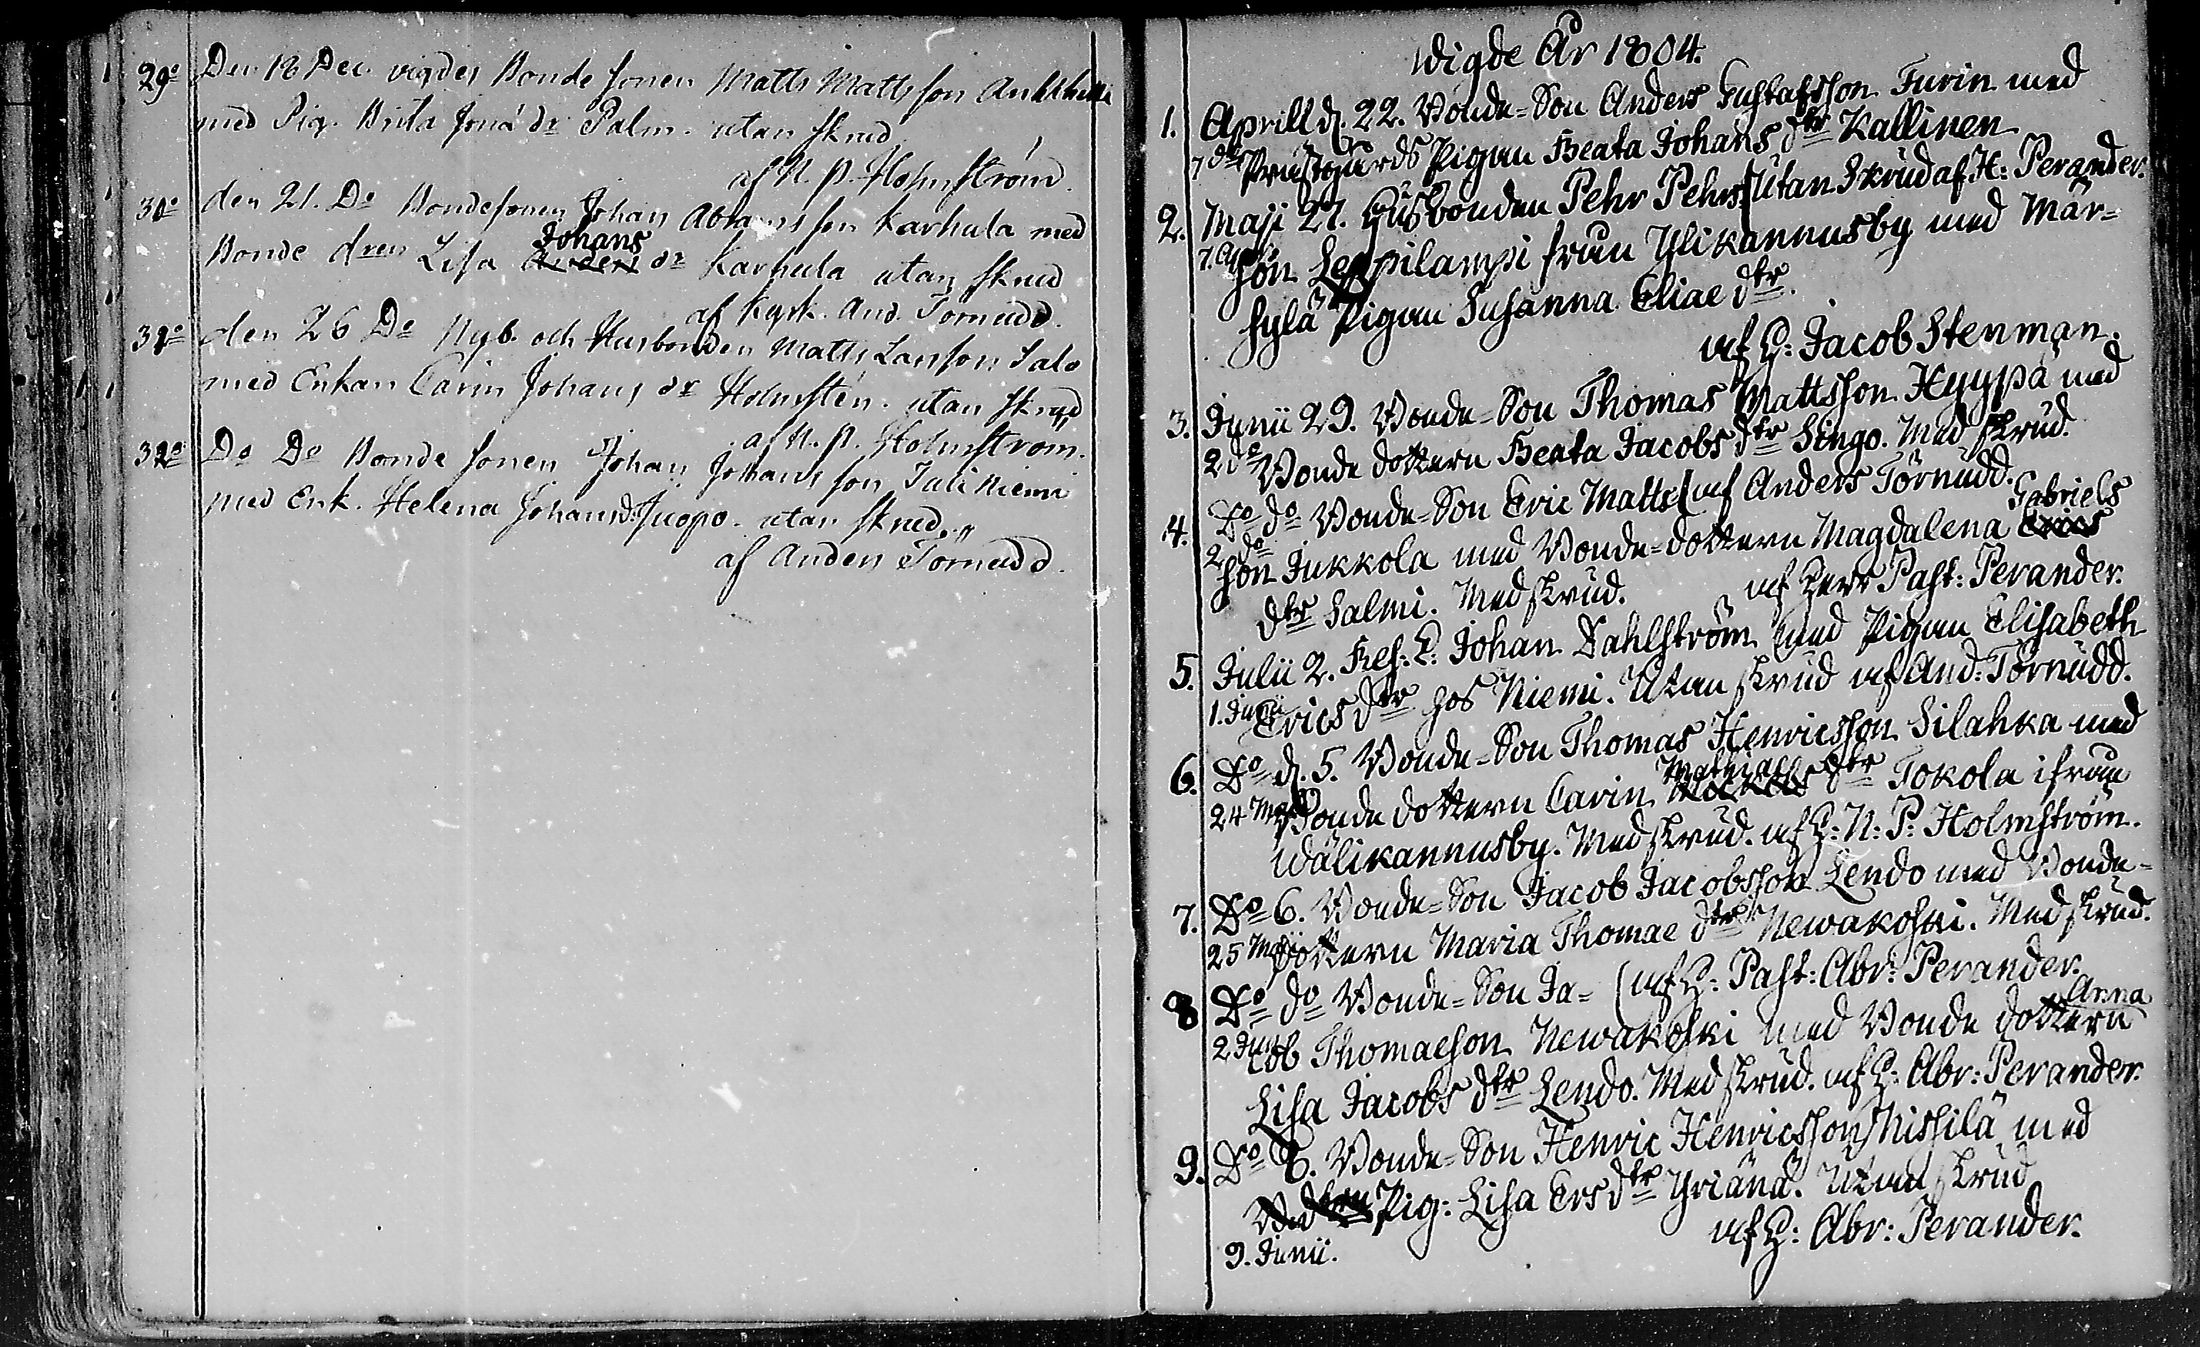 29º Den 18 Dec. vigdes Bonde sonen Matts Mattsson
med Pig. Brita Jona dr Palm. utan skrud
af N. P. Holmström.
30º den 21. Do Bondesonen Johan Abramsson Karhula med
Johans
Bonde dren Lisa Anders dr Karhula utan skrud
af Kyrk. And. Törnudd.
31º den 26 Do Nyb. och Husbonden Matts Larsson Salo
med Enkan Carin Johans dr Holmstén. utan skrud
af N. P. Holmström.
32º Do Do Bonde sonen Johan Johansson Taliniemi
med Enk. Helena Johansd. Juopo. utan skrud.
af Anders Törnudd.
Wigde År 1804.
1. Aprill d. 22. Bonde-Son Anders Gustafsson Turin med
7 do Prästgårds Pigan Beata Johans dtr Kallinen
utan Skrud af H: Perander.
2. Maji 27. Husbonden Pehr Pehrs
7. Apr. son Leppilampi från Ylikannusby med Mär=
sylä Pigan Susanna Eliae dtr.
af H: Jacob Stenman.
3. Junii 29. Bonde-Son Thomas Mattsson Hyyppä med
2 do Bonde dottern Beata Jacobs dtr Singo. Med skrud.
af Anders Törnudd.
4. Do do Bonde-Son Eric Matts
Gabriels
2 do son Jukkola med Bonde-dottern Magdalena Erics
dtr Salmi. Med skrud. af Herr Past: Perander.
5. Julii 2. Res: C: Johan Dahlström med Pigan Elisabeth
1. Junii Erics dtr hos Niemi. Utan skrud af And: Törnudd.
6. Do d. 5. Bonde-Son Thomas Henricsson Silahka med
Mathiae
24 Maji Bonde dottern Carin Mickels dtr Tokola ifrån
Wälikannusby. Med skrud. af H: N: P: Holmström.
7. Do 6. Bonde-Son Jacob Jacobsson Lendo med Bonde-
25 Maji dottern Maria Thomae dtr Newakoski. Med skrud.
af H: Past: Abr: Perander.
8 Do do Bonde-Son Ja=
Anna
2 Junii cob Thomaeson Newakoski med Bonde dottern
Lisa Jacobs dtr Lendo. Med skrud. af H: Abr: Perander.
9. Do 6. Bonde-Son Henric Henricsson Nissilä med
Pig: Lisa Ers dtr Yriänä. Utan skrud
9. Junii. af H: Abr: Perander.